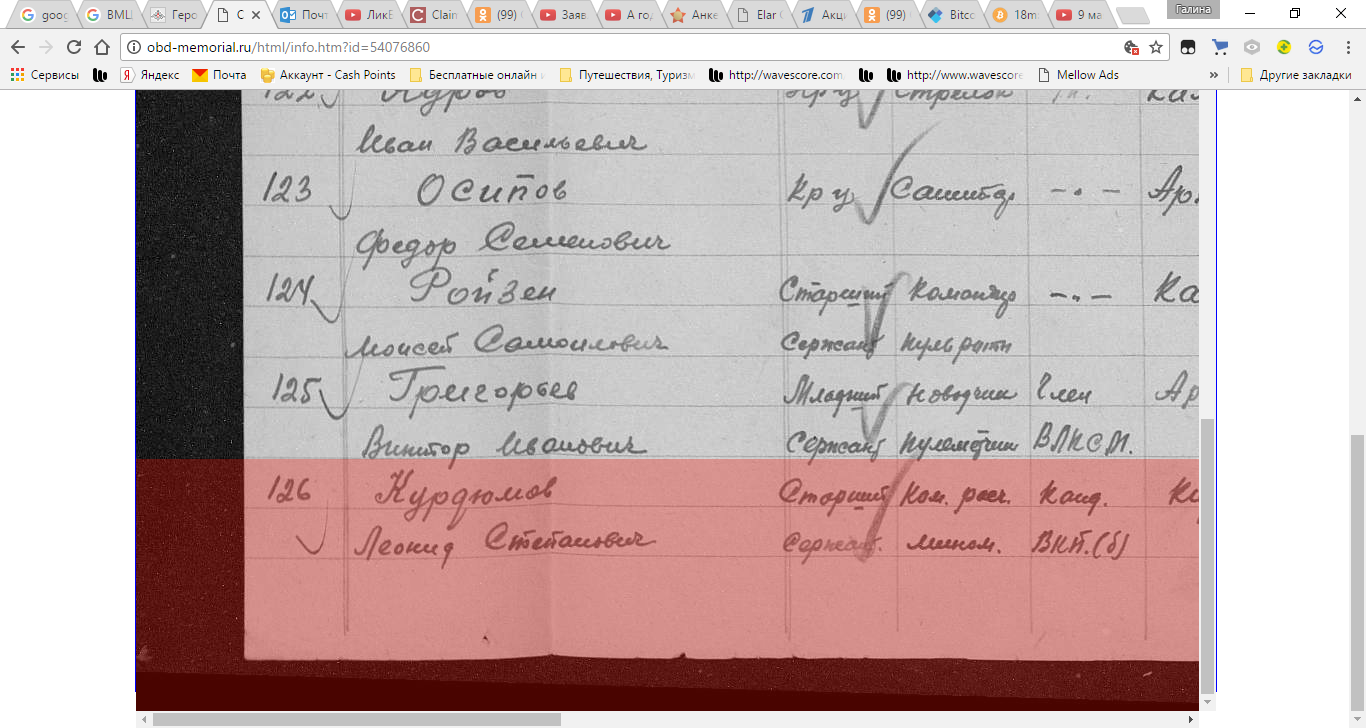 goog
ВМЦ
Геро
О
Почт
ЛикБ
Clain
(99)
Заяв
А год
Анке
Elar
Акци
(99)
Bitcc
18m
9 ма
Галина
obd-memorial.ru/html/info.htm?id=54076860
Сервисы Яндекс Почта Аккаунт - Cash Points Бесплатные онлайн и Путешествия, Туризм http://wavescore.com http://www.wavescore Mellow Ads » Другие закладки
122 Стрелок
Иван Васильевич
123 Осипов Кр-ц Санитар -„- Ар.
Федор Семенович
124 Ройзен Старший Командир -„- Ка
Моисей Самоилович Сержант пульроты
125 Григорьев Младший Наводчик Член Ар
Виктор Иванович Сержант пулеметчик ВЛКСМ.
126 Курдюмов Старший Ком. расч. Канд. Ки
Леонид Степанович Сержант. мином. ВКП.(б)